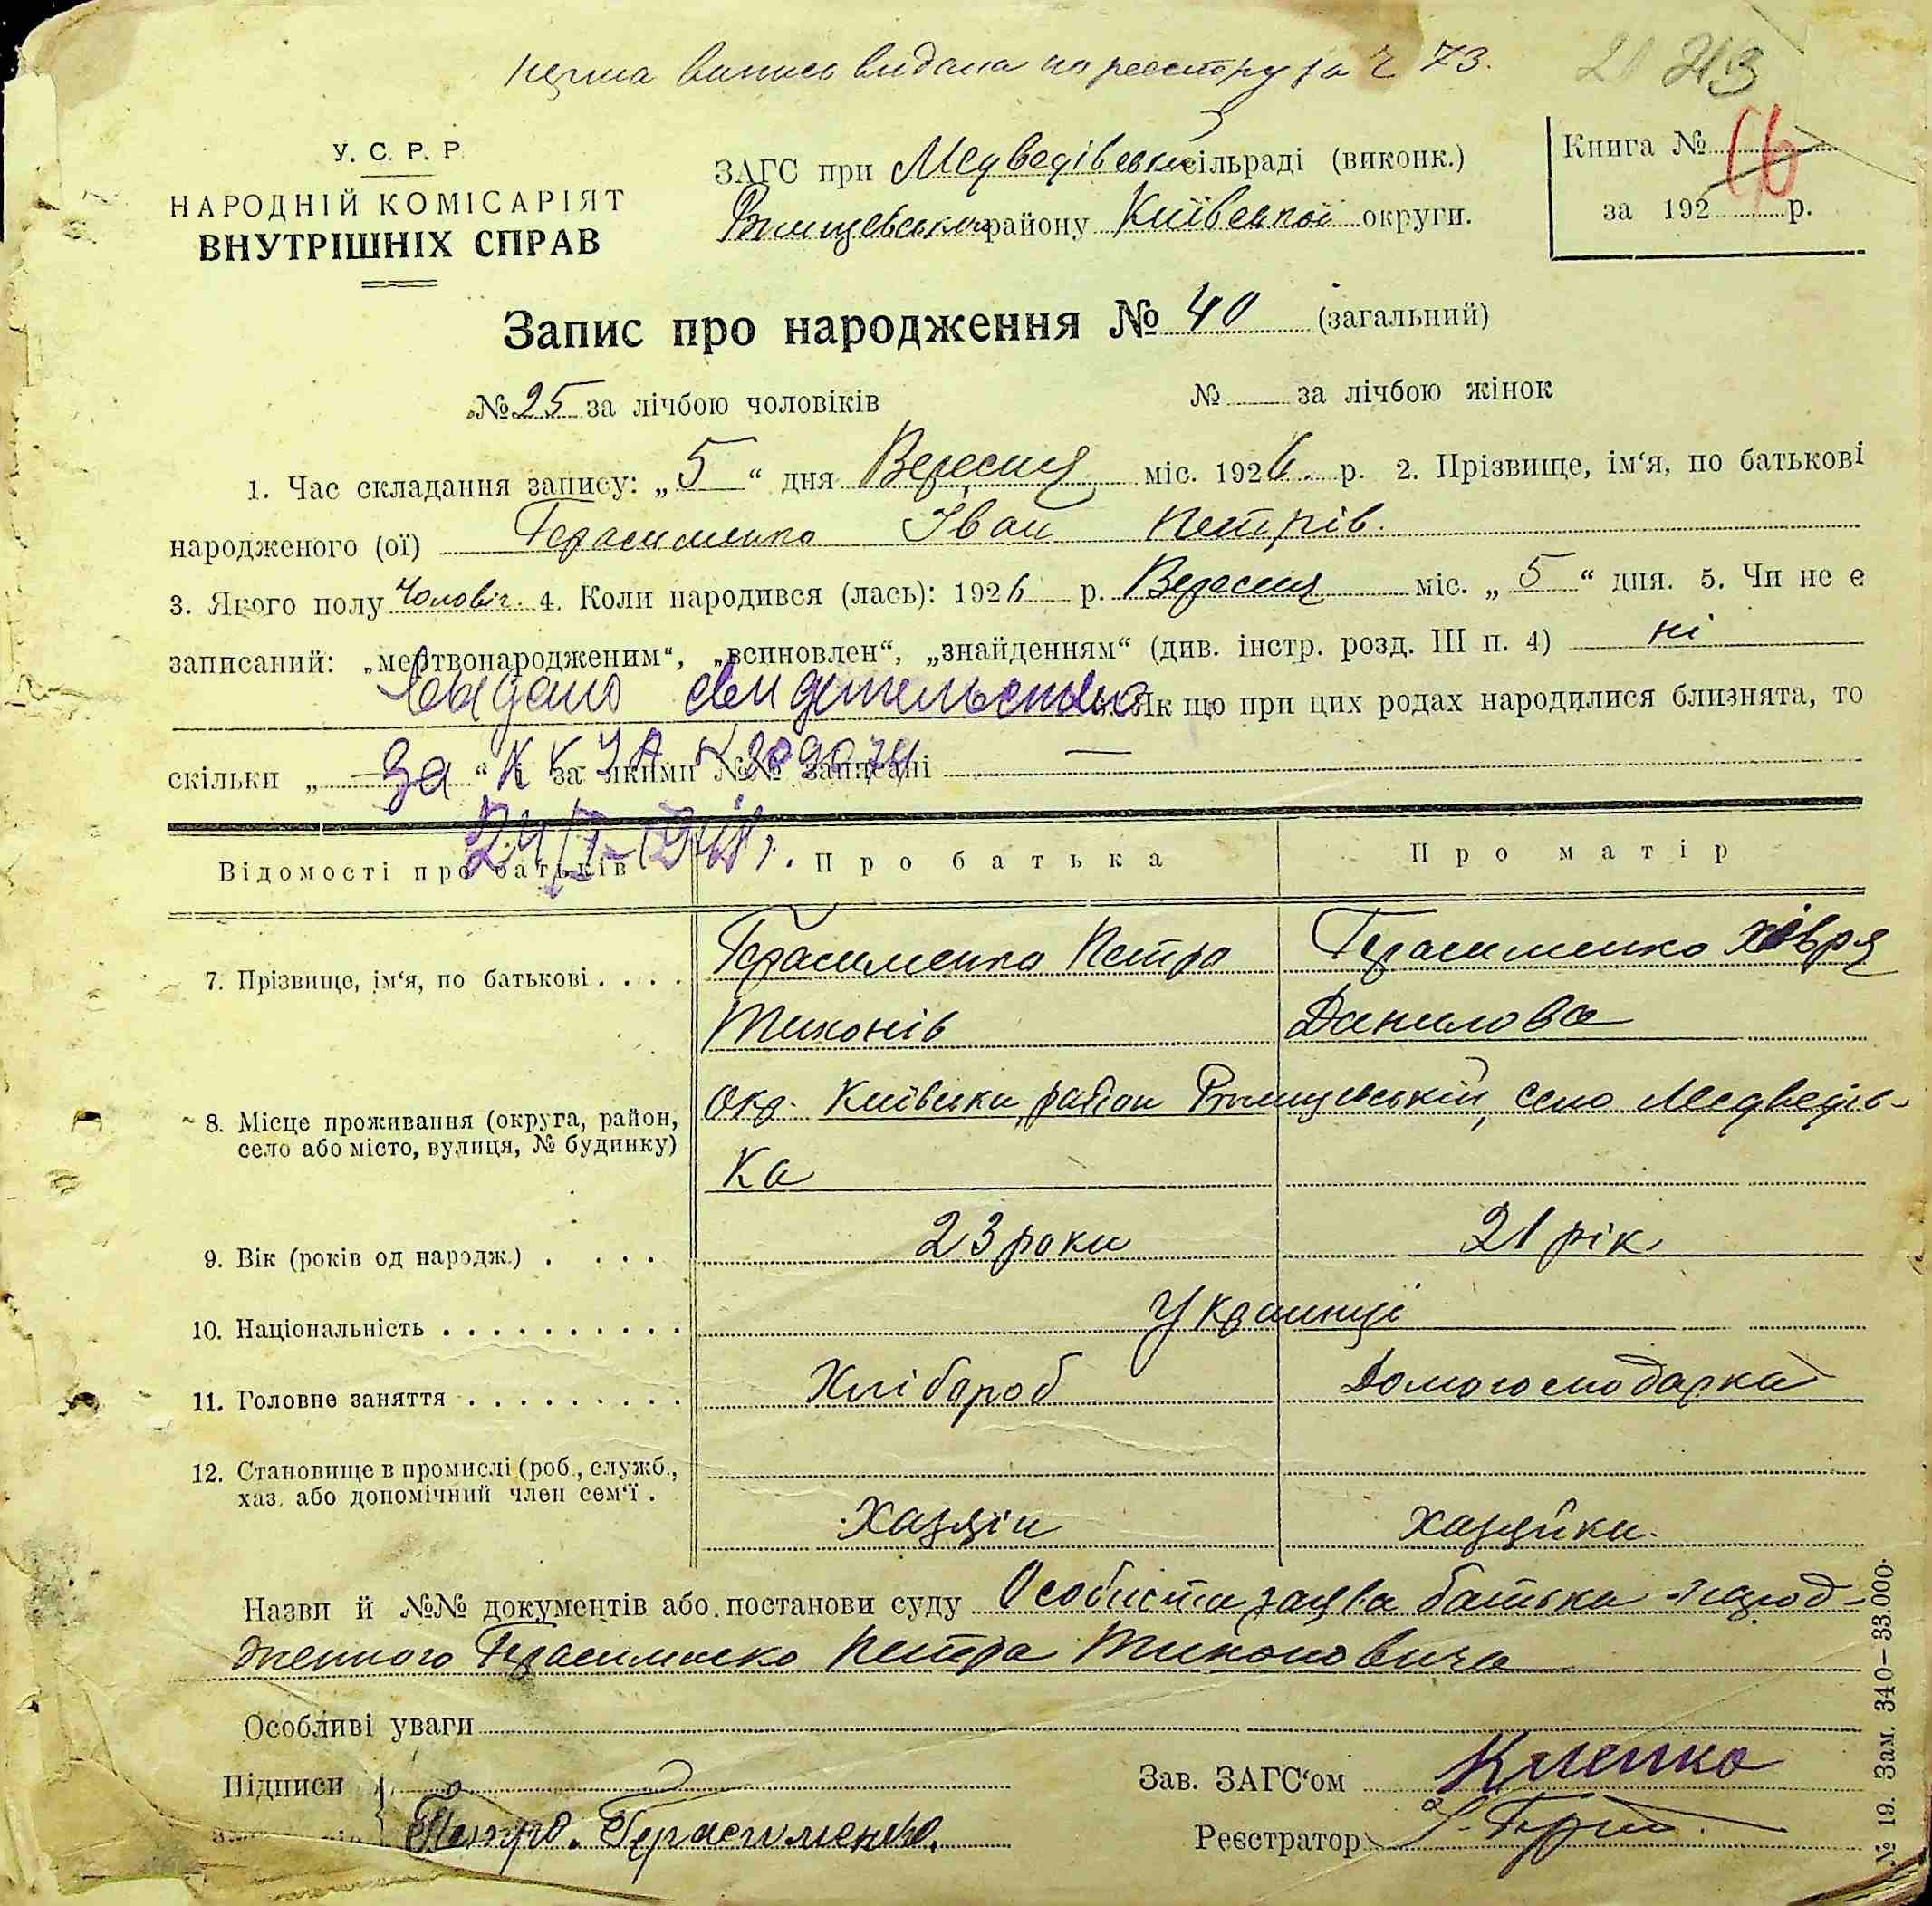 перша випись видана по реєстру за ч 73.
213
У. С. Р. Р.
НАРОДНІЙ КОМІСАРІЯТ
ВНУТРІШНІХ СПРАВ
ЗАГС при Медведівській сільраді (виконк.)
Ржищевського району Київської округи.
Книга №
за 192 р.
Запис про народження № 40 (загальний)
№ 25 за лічбою чоловіків № за лічбою жінок
1. Час складання запису: „5“ дня Вересня міс. 1926. р. 2. Прізвище, ім‘я, по батькові
народженого (ої) Герасименко Іван Петрів.
3. Якого полу Чоловіч. 4. Коли народився (лась): 1926 р. Вересня міс. „5“ дня. 5. Чи не є
записаний: „мертвонародженим“, „всиновлен“, „знайденням“ (див. інстр. розд. III п. 4) ні
Выдано свидетельство 6. Як що при цих родах народилися близнята, то
скільки „ — “ і за якими №№ записані —
за
Відомості про батьків Про батька Про матір
7. Прізвище, ім‘я, по батькові . . . . Герасименко Петро Герасименко Хівря
Тихонів Данилова
8. Місце проживання (округа, район, окр. Київська, район Ржищевський, село Медведів-
село або місто, вулиця, № будинку)
ка
9. Вік (років од народж.) . . . . 23 роки 21 рік.
10. Національність . . . . . . . . . . Українці
11. Головне заняття . . . . . . . . . Хлібороб Домогосподарка
12. Становище в промислі (роб., служб.,
хаз. або допомічний член сем‘ї .
Хазяїн хазяйка.
Назви й №№ документів або постанови суду Особиста заява батька народ-
женного Герасименко Петра Тихоновича
Особливі уваги
Підписи
Петро. Герасименко.
Зав. ЗАГС‘ом Кленко
Реєстратор
№ 19. Зам. 340–33.000.